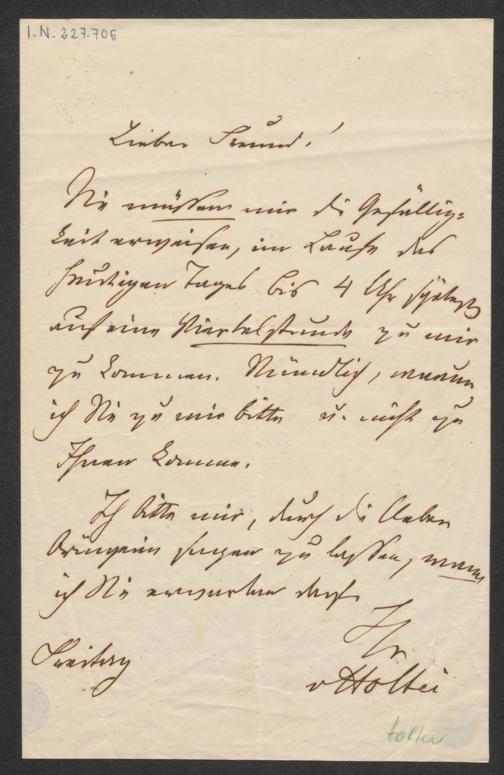 I.N. 227.706
Lieber Freund!
Sie müssen mir die Gefällig=
keit erweisen, im Laufe des
heutigen Tages bis 4 Uhr spätest
auf eine Viertelstunde zu mir
zu kommen. Mündlich, warum
ich Sie zu mir bitte u. nicht zu
Ihnen komme.
Ich bitte mir, durch die Ueber
bringerin sagen zu lassen, wann
ich Sie erwarten darf.
Ihr
Freitag
vHoltei
Holtei